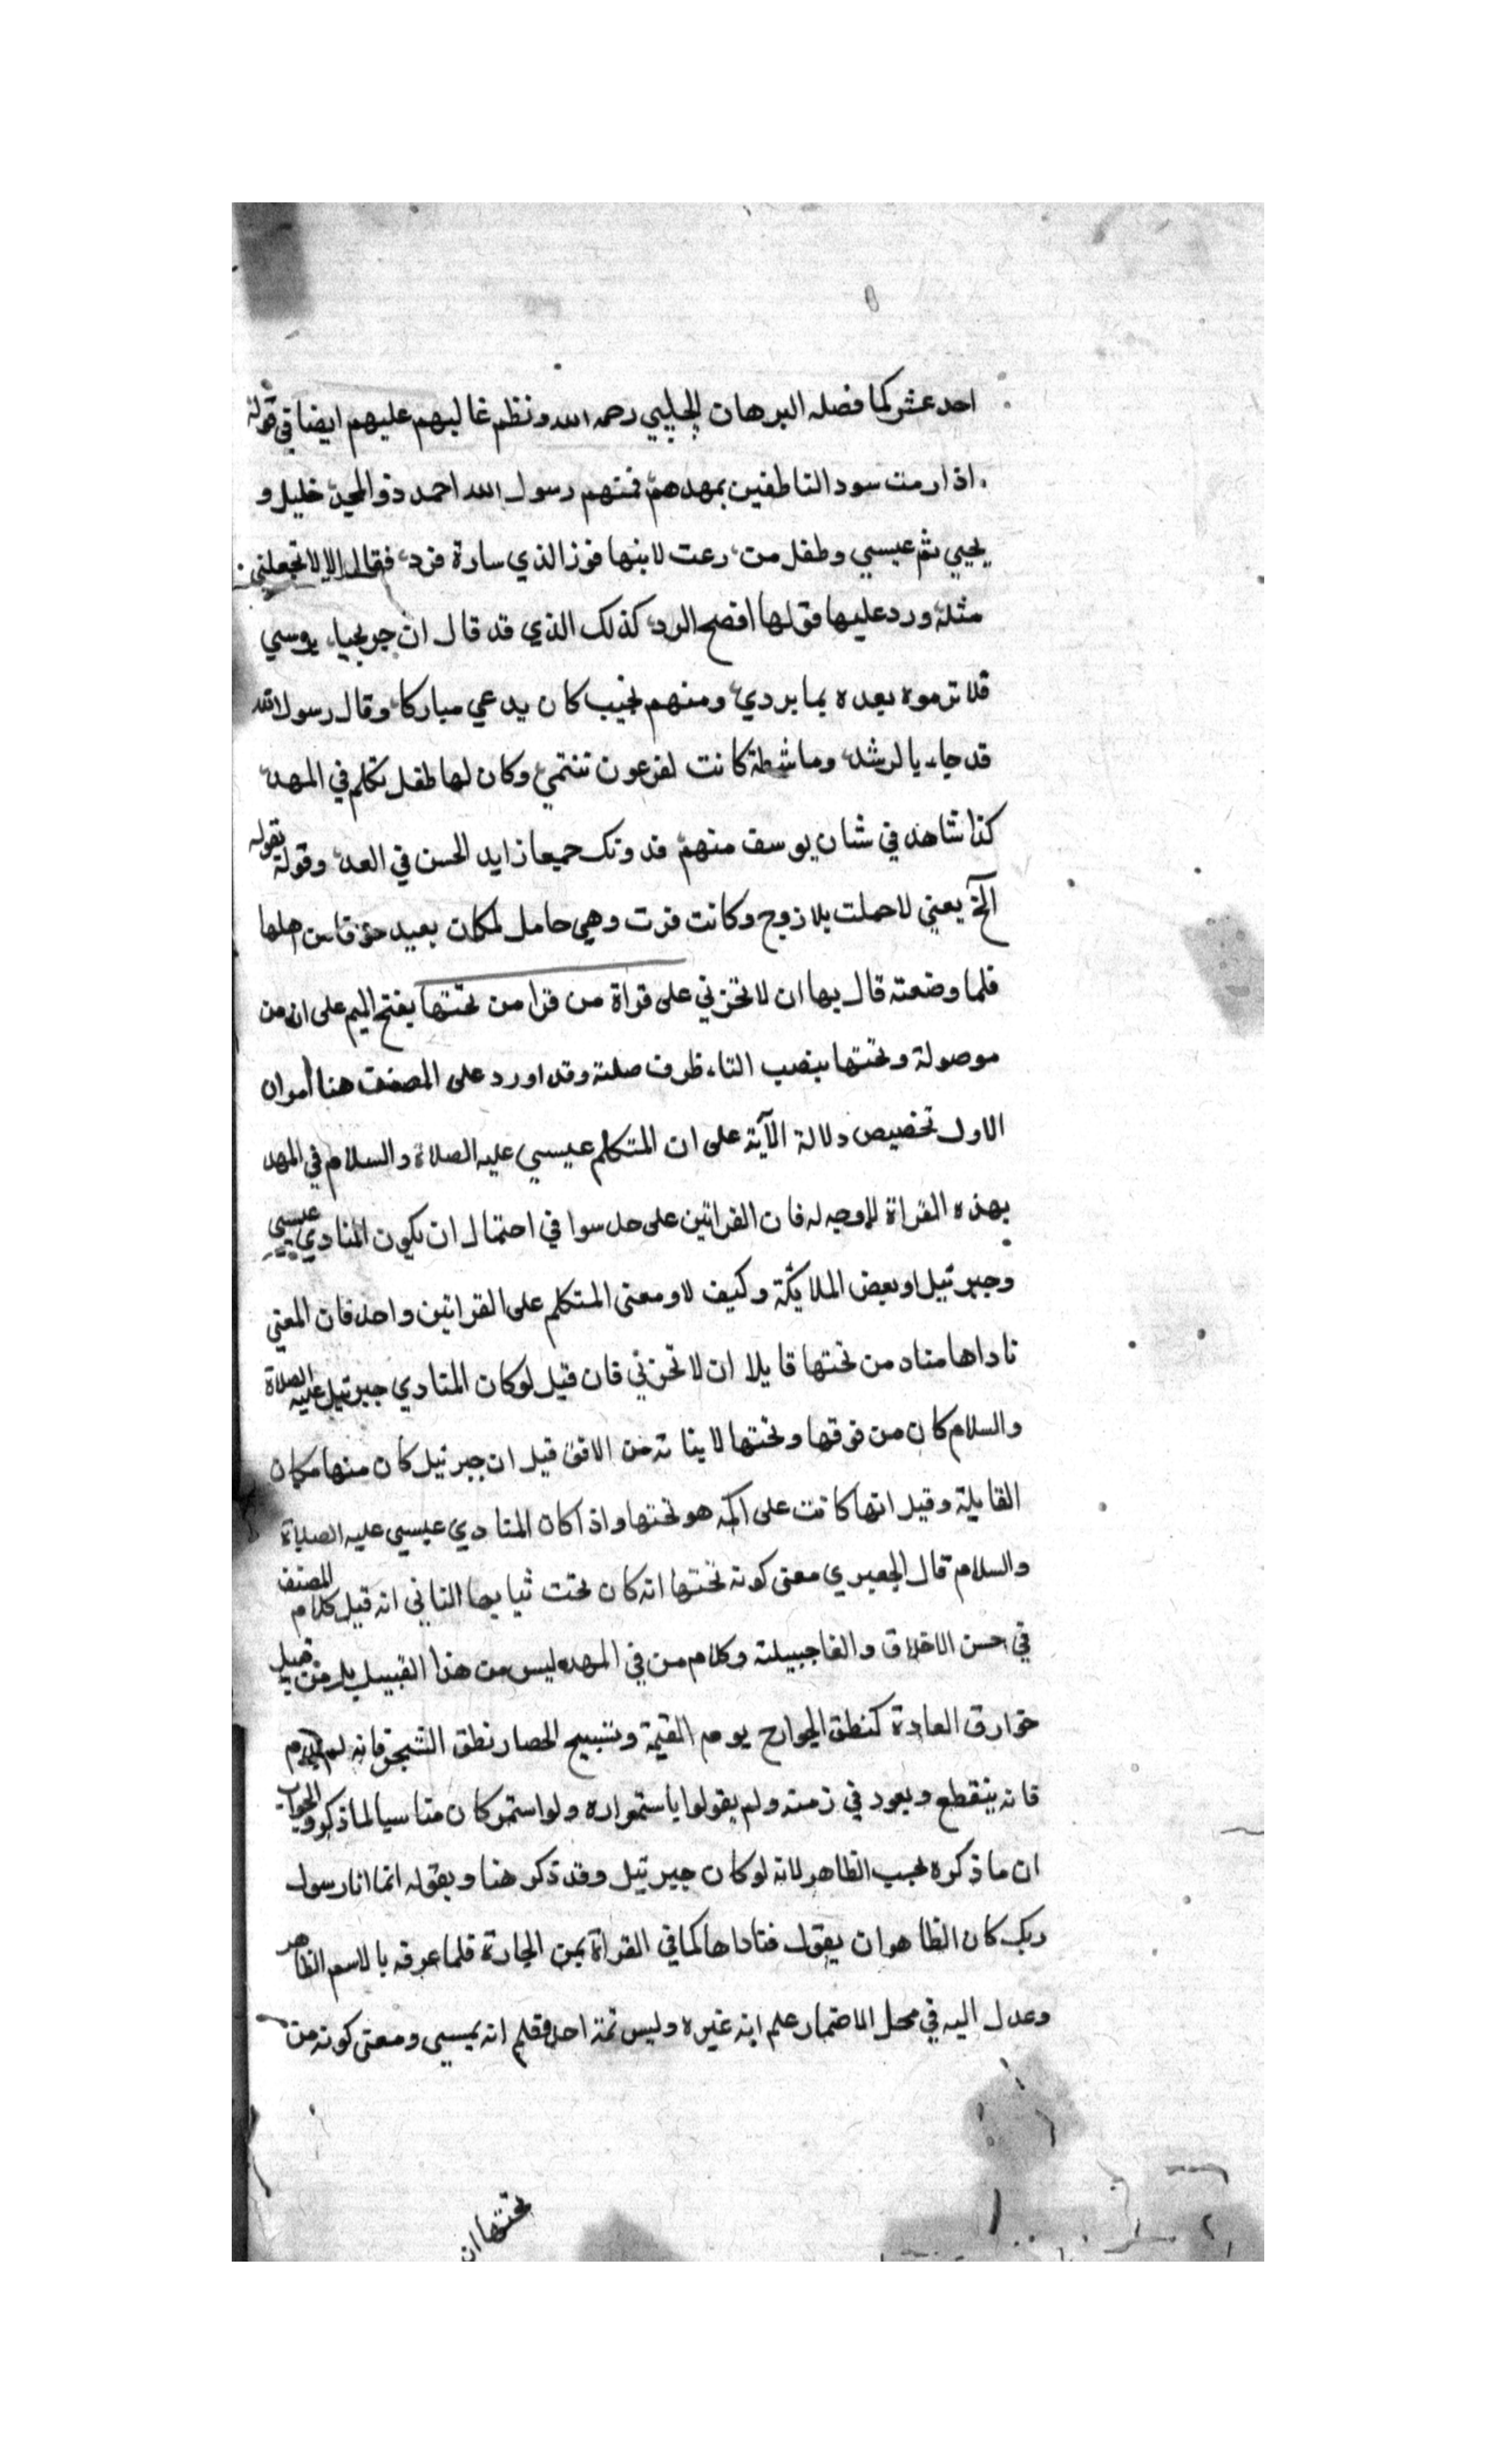 احد عشر كما فصله البرهان الحلبي رحمه الله ونظم غالبهم عليهم ايضا في قوله
اذا رمت سود الناطقين بمهدهم فمنهم رسول الله احمد ذو المجد خليل و
يحيي ثم عيسي وطفل من دعت لابنها فوز الذي سارة فرد فقال الا لا تجعلني
مثله ورد عليها قولها افصح الرد كذلك الذي قد قال ان جريجيا
فلا ترموه بعده بما يردي ومنهم نجيب كان يدعي مباركا وقال رسول الله
قد جاء بالرشد وماشطة كانت لفرعون تنتمي وكان لها طفل تكلم في المهد
كذا شاهد في شان يوسف منهم فدونك جميعا زايد الحسن في العد وقوله بقوله
الخ يعني لا حملت بلا زوج وكانت فرت وهي حامل لمكان بعيد خوفا من اهلها
فلما وضعته قال بها ان لا تحزني علي قراة من قرا من تحتها بفتح الميم على ان من
موصولة وتحتها بنصب التاء ظرف صلته وقد اورد على المصنف هنا امران
الاول تخصيص دلالة الآية على ان المتكلم عيسي عليه الصلاة والسلام في المهد
بهذه القراة لا وجه له فان القراتين على حد سوا في احتمال ان يكون المنادي عيسي
وجبرئيل او بعض الملايكة وكيف لا ومعنى المتكلم على القراتين واحد فان المعني
ناداها مناد من تحتها قايلا ان لا تحزني فان قيل لو كان المنادي جبرئيل عليه الصلاة
والسلام كان من فوقها وتحتها لاتيانه من الافق قيل ان جبرئيل كان منها مكان
القابلة وقيل انها كانت على اكمه هو تحتها واذا كان المنادي عيسي عليه الصلاة
والسلام قال الجعبري معنى كونه تحتها انه كان تحت ثيابها الثاني انه قيل كلام المصنف
في حسن الاخلاق والفا جبيلته وكلام من في المهد ليس من هذا القبيل بل من قبيل
خوارق العادة كنطق الجوارح يوم القيمة وتسبيح الحصا ونطق الشجر فانه لم
فانه ينقطع ويعود في زمنه ولم يقولوا باستمراره ولو استمر كان مناسبا لما ذكر والجواب
ان ما ذكره بحسب الظاهر لانه لو كان جبرئيل وقد ذكر هنا وبقوله انما انا رسول
ربك كان الظاهر ان يقول فناداها كما في القراة بمن الجارة فلما عرفه بالاسم الظاهر
وعدل اليه في محل الاضمار علم انه غيره وليس ثمة احد فعلم انه عيسي ومعنى كونه من
تحتها ان